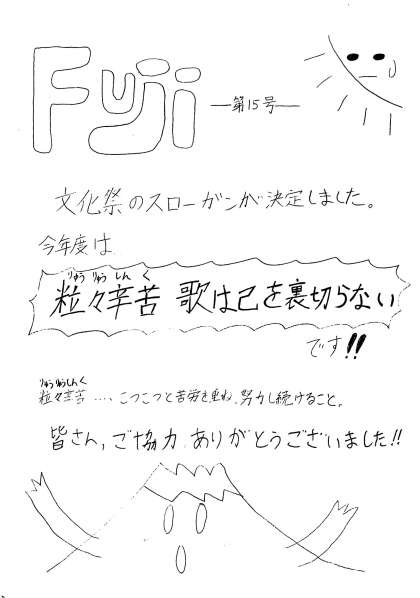 Fuji
―第15号―
文化祭のスローガンが決定しました。
今年度は
りゅうりゅうしんく
粒々辛苦 歌は己を裏切らない
です!!
りゅうりゅうしんく
粒々辛苦 …、こつこつと苦労を重ね、努力し続けること。
皆さん、ご協力、ありがとうございました!!